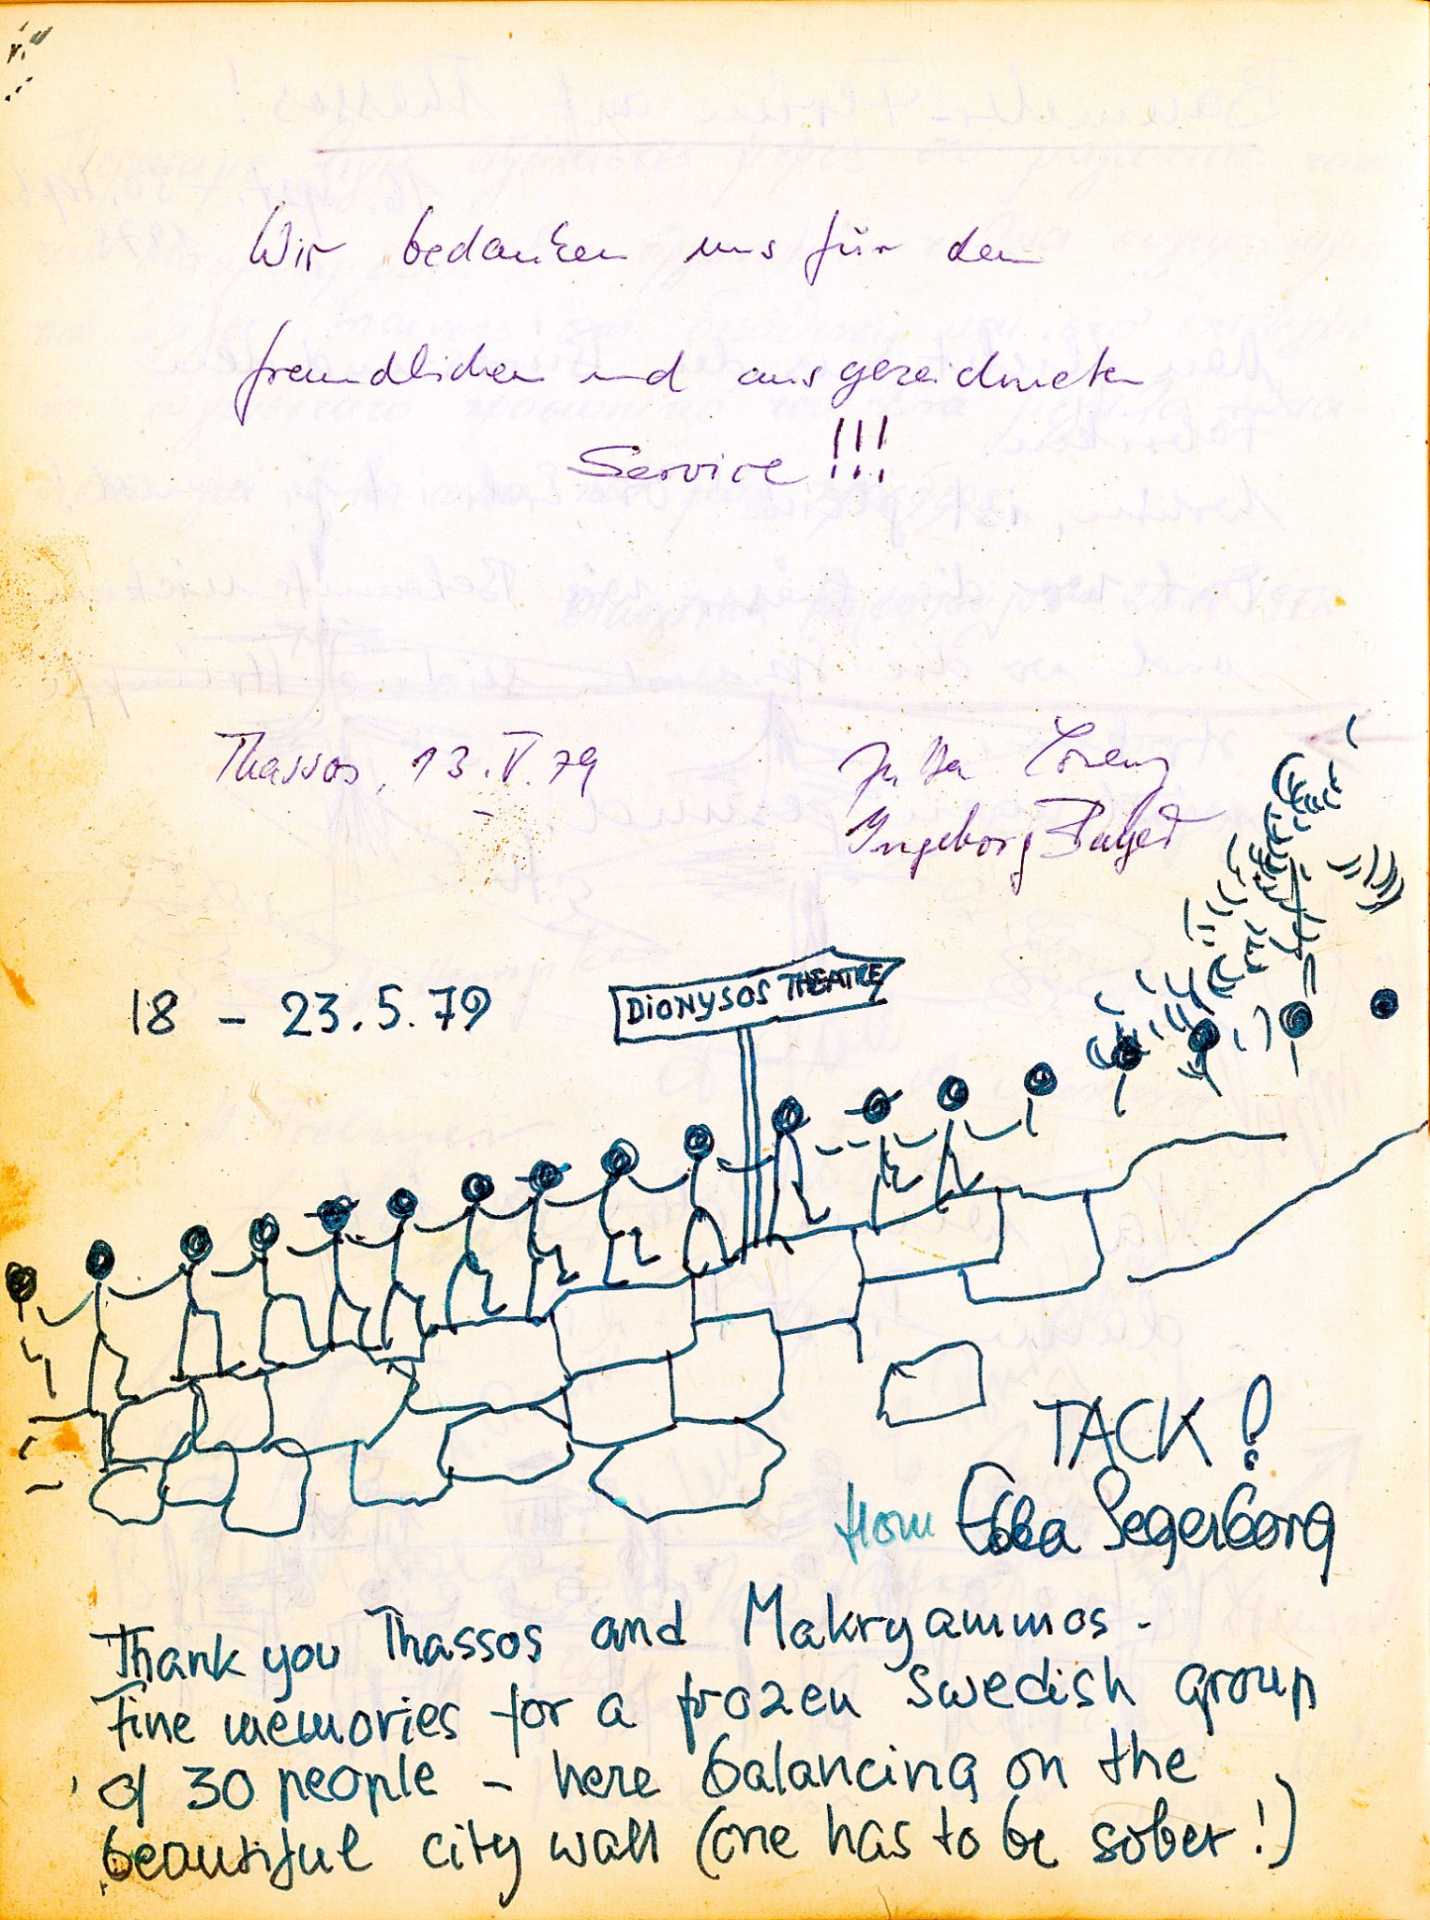 Wir bedanken uns für den
freundlichen und ausgezeichneten
Service!!!
Thassos, 13.V.79
Jutta Lorenz
Ingeborg
18 - 23.5.79
DiONYSOS THEATRE
TACK!
from Ebba Segerborg
Thank you Thassos and Makryammos -
Fine memories for a frozen Swedish group
of 30 people - here balancing on the
beautiful city wall (one has to be sober!)